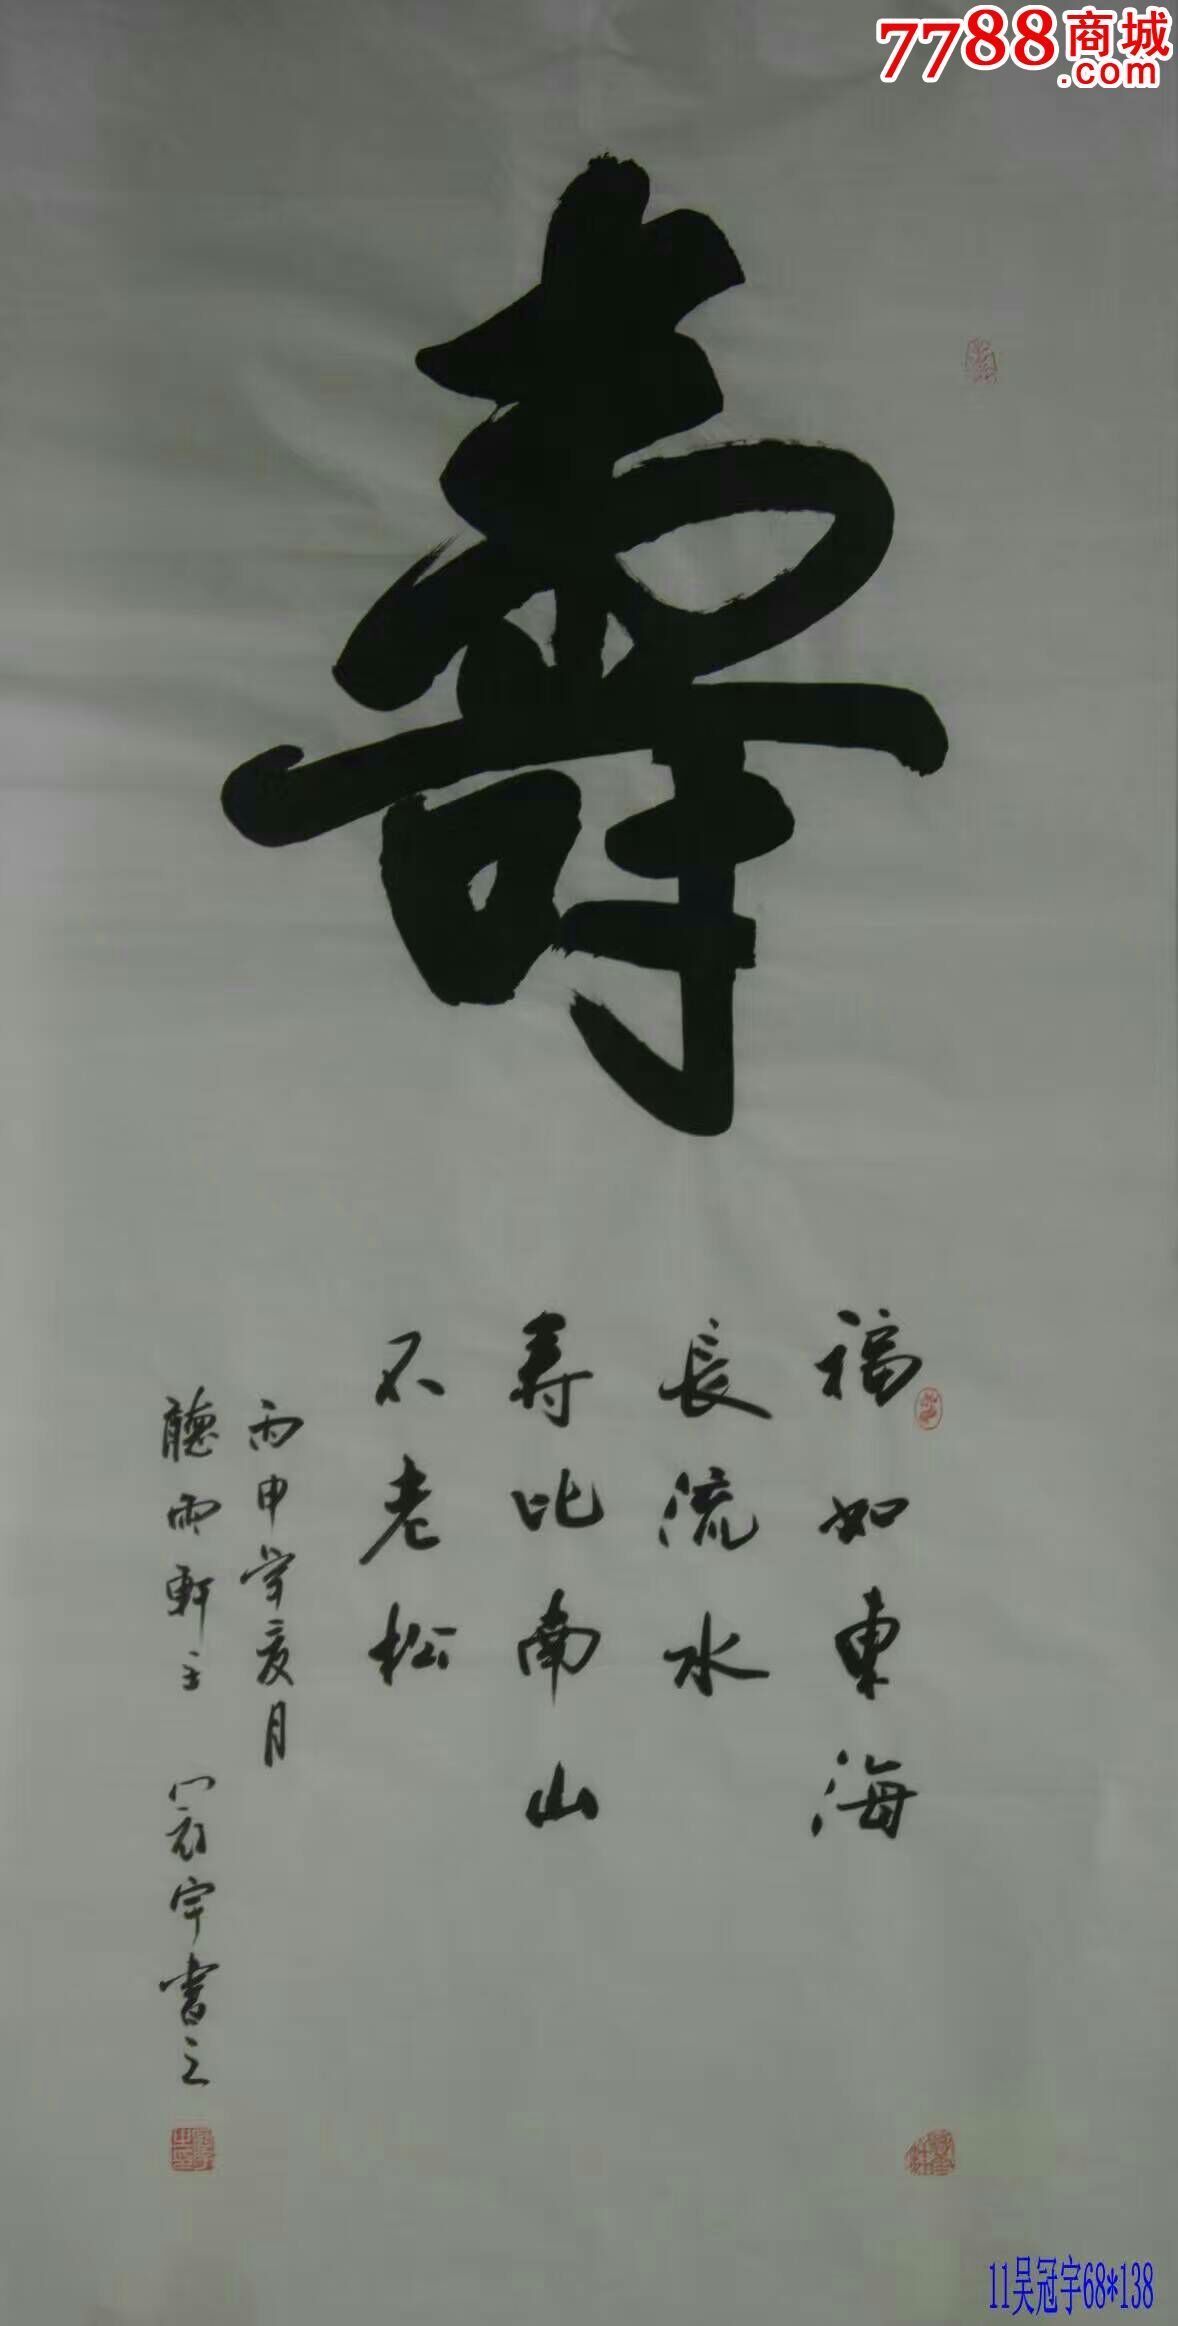 7788商城
.com
壽
福如東海
長流水
寿比南山
不老松
丙申年辛亥月
聽雨軒主 冠宇書之
11吴冠宇68*138